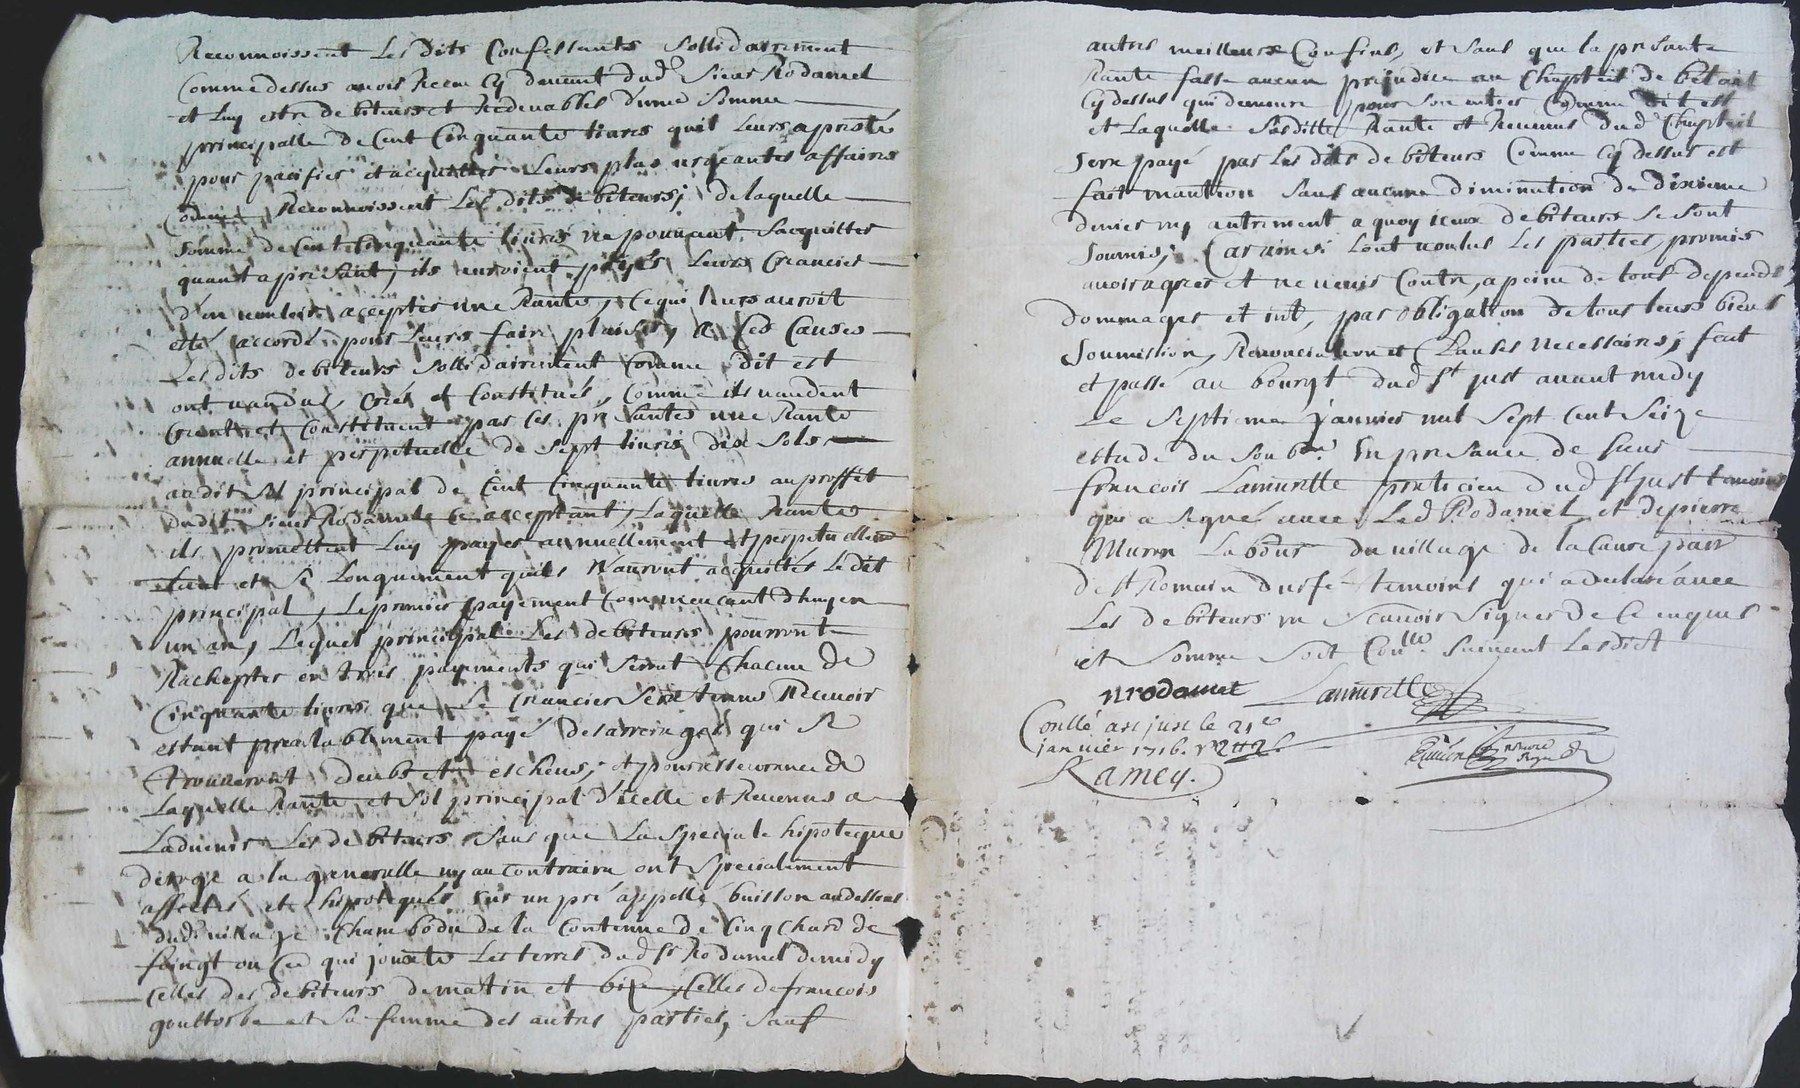 Reconnoissent Les dits Confessants Sollidairement
Comme dessus avoir Receu Cy devant dud Sieur Rodamel
et Luy estre debiteurs et Redevables d'une Somme
principalle de Cent Cinquante livres quil Leurs a presté
pour pacifier et acquitter Leurs plus urgeantes affaires
Reconnoissent Les dits debiteurs; de laquelle
Somme de Cent Cinquante livres ne pouvant Sacquitter
quant a present, ils auroient Leurs Creancier
d'en vouloir accepter une Rante, Ce qui leurs auroit
esté accordé pour Leurs faire plaisir, A Ces Causes
Les dits debiteurs Sollidairement Comme dit est
ont vandus, Créés et Constitués, Comme ils vandent
Creent et Constituent par Ces presantes une Rante
annuelle et perpetuelle de Sept livres dix Sols
audit Sol principal de Cent Cinquante livres au proffit
dudit Sieur Rodamel acceptant, Laquelle Rante
ils promettent Luy payer annuellement et perpetuellem
et Si Longuement quils N'auront acquittés Le dit
principal, Le premier payement Commencant d'huy en
un an, Lequel principal Les debiteurs pourront
Rachepter en trois payements qui Seront Chacun de
Cinquante livres que Le Creancier Sera tenu Recevoir
estant prealablement payé des arreirages qui Se
trouveront deubs et escheus; et pour asseurance de
Laquelle Rante et Sol principal d'icelle et Revenus a
Ladvenir Les debiteurs Sans que La Speciale hipoteque
deroge a la generalle ny au Contraire ont Specialement
affectés et hipotequés Sur un pré appellé buisson au dessous
dud village Chambodu de la Contenue de Cinq Chard de
foingt ou Ce qui jouxte Les terres dud Sr Rodamel de midy
Celles des debiteurs de matin et bize, Celles de francois
gouttorbe et Sa femme des autres parties, Sauf
autres meilleurs Confins, et Sans que la presante
Rante fasse aucun prejudice au Chapteil de bétail
Cy dessus qui demeure pour Son entier Comme dit est
et Laquelle Susditte Rante et Revenus dud Chapteil
Sera payé par Les dits debiteurs Comme Cy dessus est
fait mantion Sans aucune diminution de dixieme
denier ny autrement a quoy iceux debiteurs Se Sont
Soumis; Car ainsi Lont voulus Les parties, promis
avoir agreer et ne venir Contre, a peine de tous depends
dommages et int, par obligation de tous leurs biens
Soumission, Renonciation et Clauses necessaires; fait
et passé au bourgt dud St just avant midy
Le Septieme janvier mil Sept Cent Seize
estude du Soubne En presance de Sieur
francois Lamurette praticien dud St just temoins
qui a Signé avec Led Rodamel et de pierre
Muron Labour du village de la Caure parr
de St Romain durfé temoins qui a declaré avec
Les debiteurs ne Scavoir Signer de Ce enquis
et Somme Soit Conlle Suivant Lesdict
nrodamel Lamurette
Conllé a st just le 21e
janvier 1716.
Ramey.